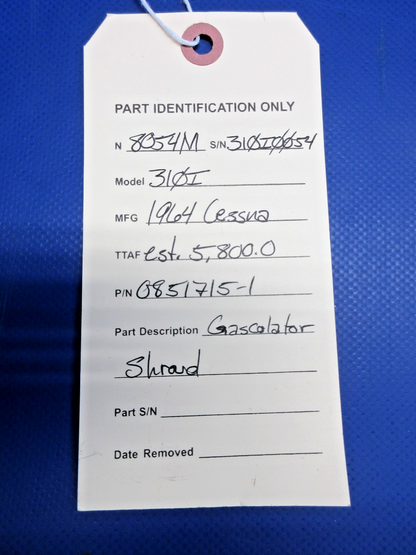 PART IDENTIFICATION ONLY
N 8054M S/N 310I0054
Model 310I
MFG 1964 Cessna
TTAF est. 5,800.0
P/N 0851715-1
Part Description Gascolator
Shroud
Part S/N
Date Removed